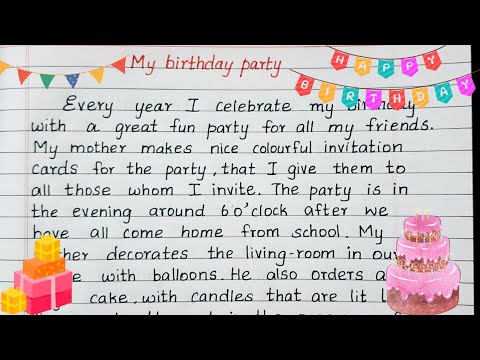 My birthday party
HAPPY
BIRTHDAY
Every year I celebrate my birthday
with a great fun party for all my friends.
My mother makes nice colourful invitation
cards for the party, that I give them to
all those whom I invite. The party is in
the evening around 6 o'clock after we
have all come home from school. My
decorates the living-room in our
with balloons. He also orders a
cake, with candles that are lit